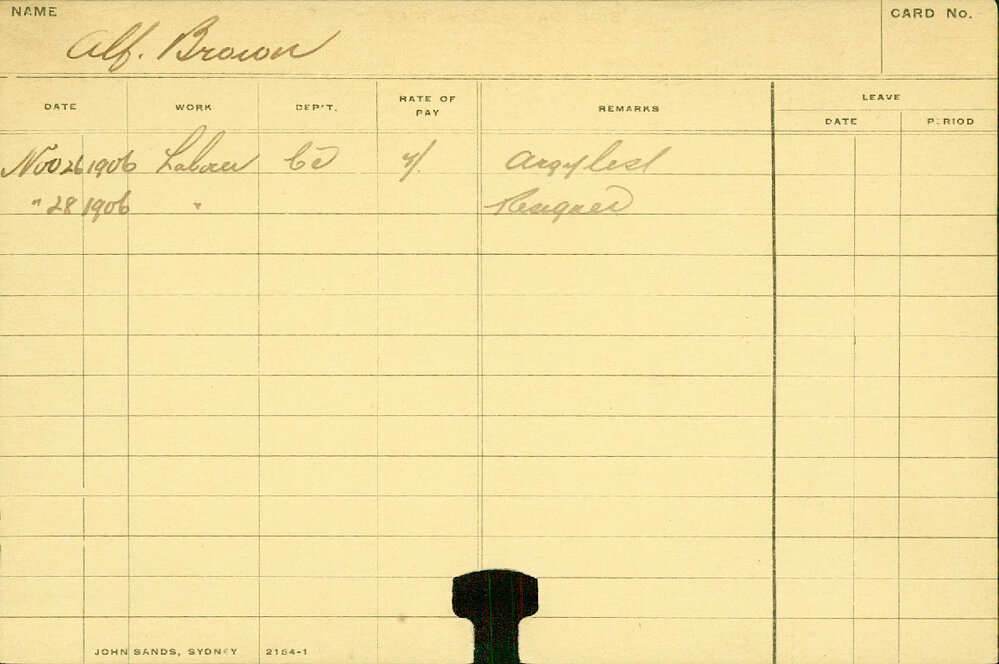 NAME
Alf. Brown
CARD No.
DATE WORK DEP'T. RATE OF PAY REMARKS LEAVE
DATE PERIOD
Nov 26 1906 Labour 7/. Argyle st
" 28 1906 " Resigned
JOHN SANDS, SYDNEY 2154-1